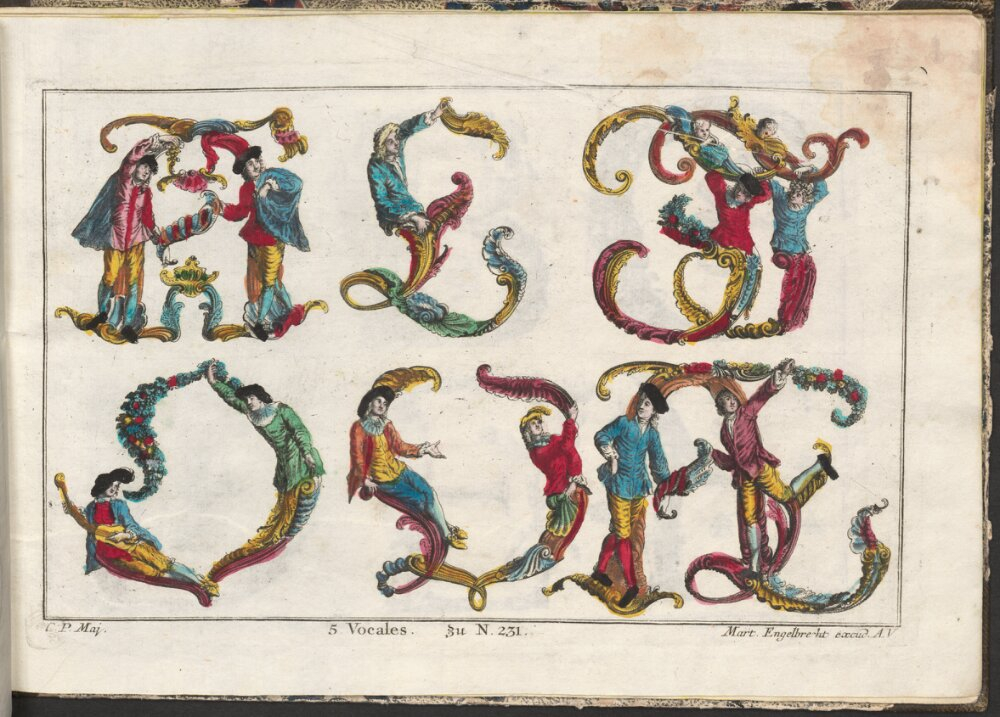 A E J
O U Æ
C. P. Maj.
5 Vocales. Zu N. 231.
Mart. Engelbrecht excud. A.V.